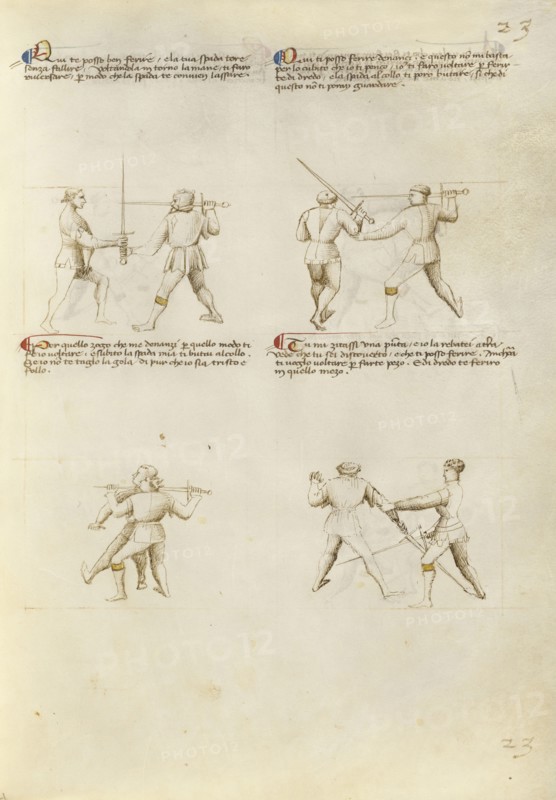 23
Qui te posso ben ferire / e la tua spada tore /
senza fallire. Voltandola in torno la mane / ti faro
riversare / p modo che la spada te conven lassare.
Qui ti posso ferire denanci. e questo non mi basta
per lo cubito che io ti penzo / io ti faro voltare p ferir
te di dredo / e la spada al collo ti poro butare / si che di
questo non ti porai guardare.
Per quello zogo che me denanzi p quello modo ti
voltare / e subito la spada mia ti butai al collo.
Se io no te taglo la gola. di pur che io sia tristo e
follo.
Tu mi zitassi una punta / e io la rebatei a tra
Vede che tu sei discoverto / e che ti posso ferire. Anchora
ti voglo voltare p farte pezo. E di dredo te feriro
in quello mezo.
23
PHOTO12